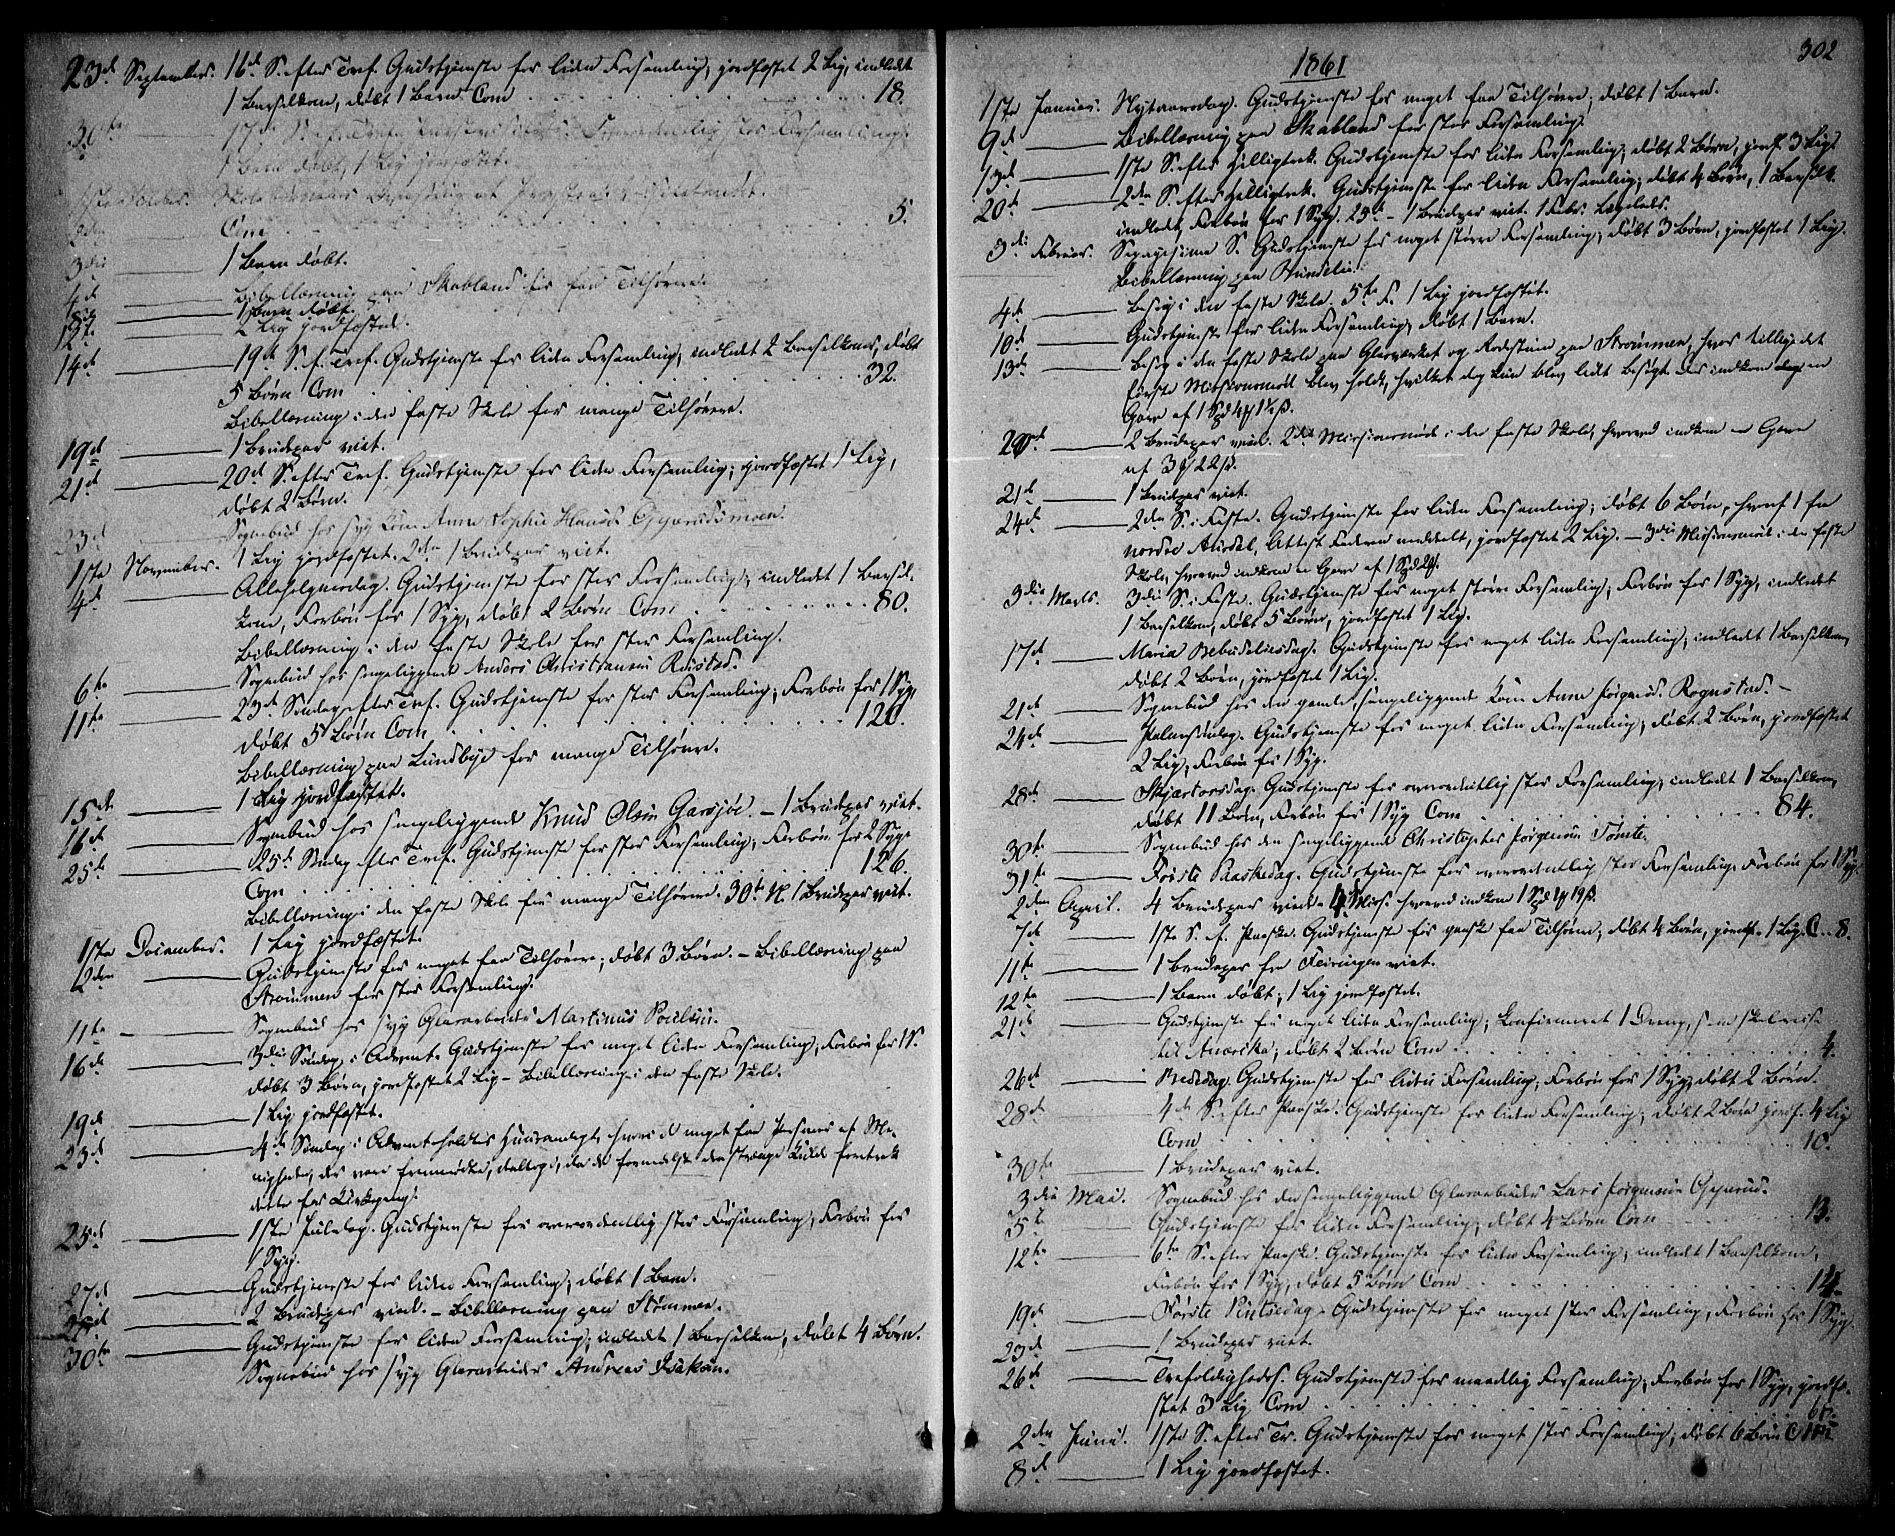 23d September. 16d S. efter Tref. Gudstjeneste for liden Forsamling, jordfæstet 2 Lig, indledet
1 Barselkone, døbt 1 Barn. Com . . . 18.
30te
1 Barn døbt, 1 Lig jordfæstet.
1ste October.
2den Com . . . 5.
3die 1 Barn døbt.
4d Bibellæsning paa Skabland for faa Tilhørere.
1 Barn døbt.
12t. 2 Lig jordfæstet.
14d 19d S. e. Tref. Gudstjeneste for liden Forsamling, indledet 2 Barselkoner, døbt
5 Børn Com . . . 32.
Bibellæsning i den faste Skole for mange Tilhørere.
19d 1 Brudepar viet.
21d 20d S. efter Tref. Gudstjeneste for liden Forsamling; jordfæstet 1 Lig,
døbt 2 Børn.
23d Sognebud hos syg Kone Anne Sophie Hansd.
1ste November. 1 Lig jordfæstet. 2den 1 Brudepar viet.
4d Allehelgensdag. Gudstjeneste for stor Forsamling, indledet 1 Barsel-
kone, Forbøn for 1 Syg, døbt 2 Børn Com . . . 80.
Bibellæsning i den faste Skole for stor Forsamling.
6te Sognebud hos sengeliggende Anders Christiansen Rustad.
11te 23d Søndag efter Tref. Gudstjeneste for stor Forsamling; Forbøn for 1 Syg,
døbt 5 Børn Com . . . 120.
Bibellæsning paa Lundbye for mange Tilhørere.
15de 1 Lig jordfæstet.
16d Sognebud hos sengeliggende Knud Olsen Garsjøe. – 1 Brudepar viet.
25d 25d Søndag efter Tref. Gudstjeneste for stor Forsamling, Forbøn for 2 Syge
Com . . . 126.
Bibellæsning i den faste Skole for mange Tilhørere. 30te N. 1 Brudepar viet.
1ste December. 1 Lig jordfæstet.
2den Gudstjeneste for meget faa Tilhørere; døbt 3 Børn. – Bibellæsning paa
Strømmen for stor Forsamling.
11te Sognebud hos syg Glasarbeider Martinus Poulsen.
16d 3die Søndag i Advent. Gudstjeneste for meget liden Forsamling, Forbøn for 1 S.
døbt 3 Børn, jordfæstet 2 Lig – Bibellæsning i den faste Skole.
19d 1 Lig jordfæstet.
23d 4de Søndag i Advent holdtes Huusandagt, hvori et meget faa Personer af Me-
nigheden, der vare fremmødte, deeltoge, da de formedelst den strænge Kulde foretrak
dette for Kirkegang.
25d 1ste Juledag. Gudstjeneste for overordentlig stor Forsamling, Forbøn for
1 Syg.
27d Gudstjeneste for liden Forsamling; døbt 1 Barn.
2 Brudepar viet. – Bibellæsning paa Strømmen.
30te Gudstjeneste for liden Forsamling; indledet 1 Barselkone, døbt 4 Børn.
Sognebud hos syg Glasarbeider Andreas Isaksen.
302
1861
1ste Januar. Nytaarsdag. Gudstjeneste for meget faa Tilhørere; døbt 1 Barn.
9d Bibellæsning paa Skabland for stor Forsamling.
13d 1ste S. efter Helligtrek. Gudstjeneste for liden Forsamling, døbt 2 Børn, jordf. 3 Lig.
20d 2den S. efter Helligtrek. Gudstjeneste for liden Forsamling; døbt 4 Børn, 1 Barselk.
indledt, Forbøn for 1 Syg. 25d – 1 Brudepar viet. 1 Febr.
3die Februar. Sexagesima S. Gudstjeneste for noget større Forsamling, døbt 3 Børn, jordfæstet 1 Lig.
Bibellæsning paa
4d Besøg i den faste Skole. 5te F. 1 Lig jordfæstet.
10d Gudstjeneste for liden Forsamling, døbt 1 Barn.
13d Besøg i den faste Skole paa Glasværket og paa Strømmen, hvor tillige det
første Missionsmøde blev holdt, hvilket dog kun blev lidt besøgt. Der indkom en
Gave af 1 Spd 4 ₰ 1½ ß.
20d 2 Brudepar viede. 2det Missionsmøde i den faste Skole, hvorved indkom en Gave
af 3 ₰ 22 ß.
21d 1 Brudepar viet.
24d 2den S. i Faste. Gudstjeneste for liden Forsamling; døbt 6 Børn, hvoraf 1 fra
nordre Attest Faderen meddelt, jordfæstet 2 Lig. – 3die Missionsmøde i den faste
Skole, hvorved indkom en Gave af 1 Spd 2 ₰.
3die Marts. 3die S. i Faste. Gudstjeneste for noget større Forsamling, Forbøn for 1 Syg, indledet
1 Barselkone, døbt 5 Børn, jordfæstet 1 Lig.
17d Maria Bebudelsesdag. Gudstjeneste for meget liden Forsamling, indledet 1 Barselkone,
døbt 2 Børn, jordfæstet 1 Lig.
21d Sognebud hos den gamle, sengeliggende Kone Anne Jørgensd. Rognstad. –
24d Palmesøndag. Gudstjeneste for meget liden Forsamling, døbt 2 Børn, jordfæstet
2 Lig, Forbøn for 1 Syg.
28d Skjærtorsdag. Gudstjeneste for overordentlig stor Forsamling, indledt 1 Barselkone,
døbt 11 Børn, Forbøn for 1 Syg Com . . . 84.
30te Sognebud hos den sengeliggende Christopher Jørgensen Tømte.
31te Første Paaskedag. Gudstjeneste for overordentlig stor Forsamling. Forbøn for 1 Syg.
2den April. 4 Brudepar viede. 4 Miss. hvorved indkom 1 Spd 1 ₰ 19 ß.
7de 1ste S. e. Paaske. Gudstjeneste for ganske faa Tilhørere, døbt 4 Børn, jordf. 1 Lig. C. . 8.
11te 1 Brudepar fra Feiringen viet.
12te 1 Barn døbt; 1 Lig jordfæstet.
21d Gudstjeneste for meget liden Forsamling; Confirmeret 1 Dreng, som skal reise
til Amerika; døbt 2 Børn Com . . . 4.
26d Bededag. Gudstjeneste for liden Forsamling, Forbøn for 1 Syg, døbt 2 Børn.
28d 4de S. efter Paaske. Gudstjeneste for liden Forsamling, døbt 2 Børn jordf. 4 Lig
Com . . . 10.
30te 1 Brudepar viet.
3die Mai. Sognebud hos den sengeliggende Glasarbeider Lars Jørgensen Gjerud.
5te Gudstjeneste for liden Forsamling, døbt 4 Børn Com . . . 13.
12te 6te S. efter Paaske. Gudstjeneste for liden Forsamling, indledet 1 Barselkone,
Forbøn for 1 Syg, døbt 5 Børn Com . . . 14.
19d Første Pintsedag. Gudstjeneste for meget stor Forsamling, Forbøn for 1 Syg.
23d 1 Brudepar viet.
26d Trefoldigheds. Gudstjeneste for maadelig Forsamling; Forbøn for 1 Syg, jordfæ-
stet 3 Lig Com . . .
2den Juni. 1ste S. efter Tr. Gudstjeneste for meget stor Forsamling; døbt 6 Børn C
8d 1 Lig jordfæstet.